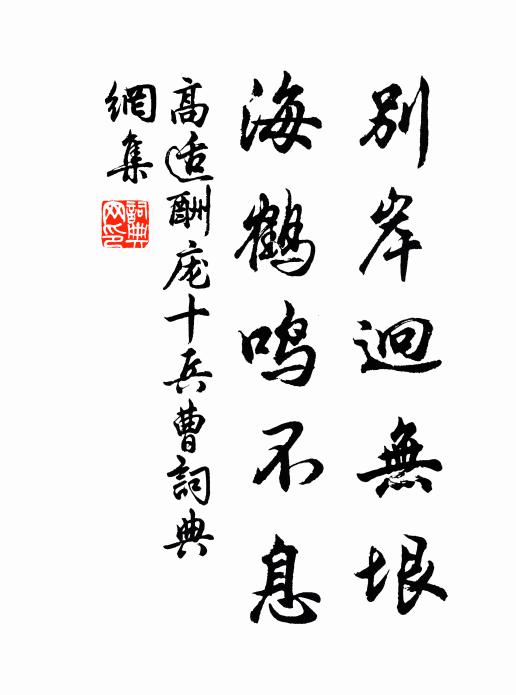 別岸迥無垠
海鶴鳴不息
高适酬庞十兵曹詞典
網集
詞典
网印